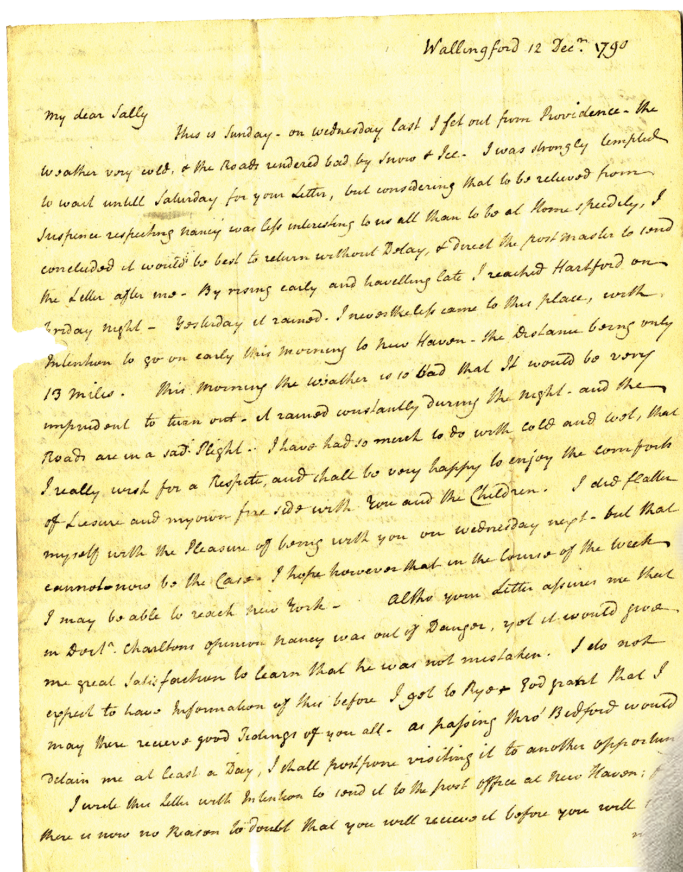 Wallingford 12 Decr. 1790
My dear Sally
This is Sunday - on wednesday last I set out from Providence - the
weather very cold, & the Roads rendered bad by Snow & Ice - I was strongly tempted
to wait untill Saturday for your Letter, but considering that to be relieved from
Suspence respecting nancy was less interesting to us all than to be at Home speedily, I
concluded it would be best to return without Delay, & direct the post master to send
the Letter after me - By rising early and travelling late I reached Hartford on
Friday night - Yesterday it rained. I nevertheless came to this place, with
Intention to go on early this morning to New Haven - the Distance being only
13 miles. This Morning the weather is so bad that It would be very
imprudent to turn out - it rained constantly during the night - and the
Roads are in a sad Plight - I have had so much to do with cold and wet, that
I really wish for a Respite, and shall be very happy to enjoy the comforts
of Liesure and my own fire side with You and the Children. I did flatter
myself with the Pleasure of being with you on wednesday next - but that
cannot now be the Case - I hope however that in the Course of the week
I may be able to reach New York - Altho your Letter assures me that
in Doctr. Charltons opinion nancy was out of Danger, yet it would give
me great Satisfaction to learn that he was not mistaken. I do not
expect to have Information of this before I get to Rye & God grant that I
may there recieve good Tidings of you all - as passing thro' Bedford would
Detain me at least a Day, I shall postpone visiting it to another
I write this Letter with Intention to send it to the post office at New Haven;
there is now no Reason to doubt that you will recieve it before you will